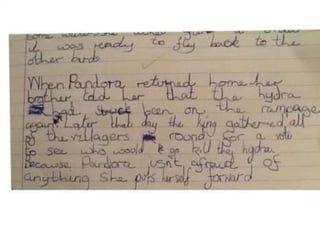 it was ready to fly back to the
other birds
When Pandora returned home her
brother told her that the hydra
had been on the rampage
again. Later that day the king gathered all
of the villagers round for a vote
to see who would go kill the hydra
because Pandora isn't afraid of
anything she puts herself forward